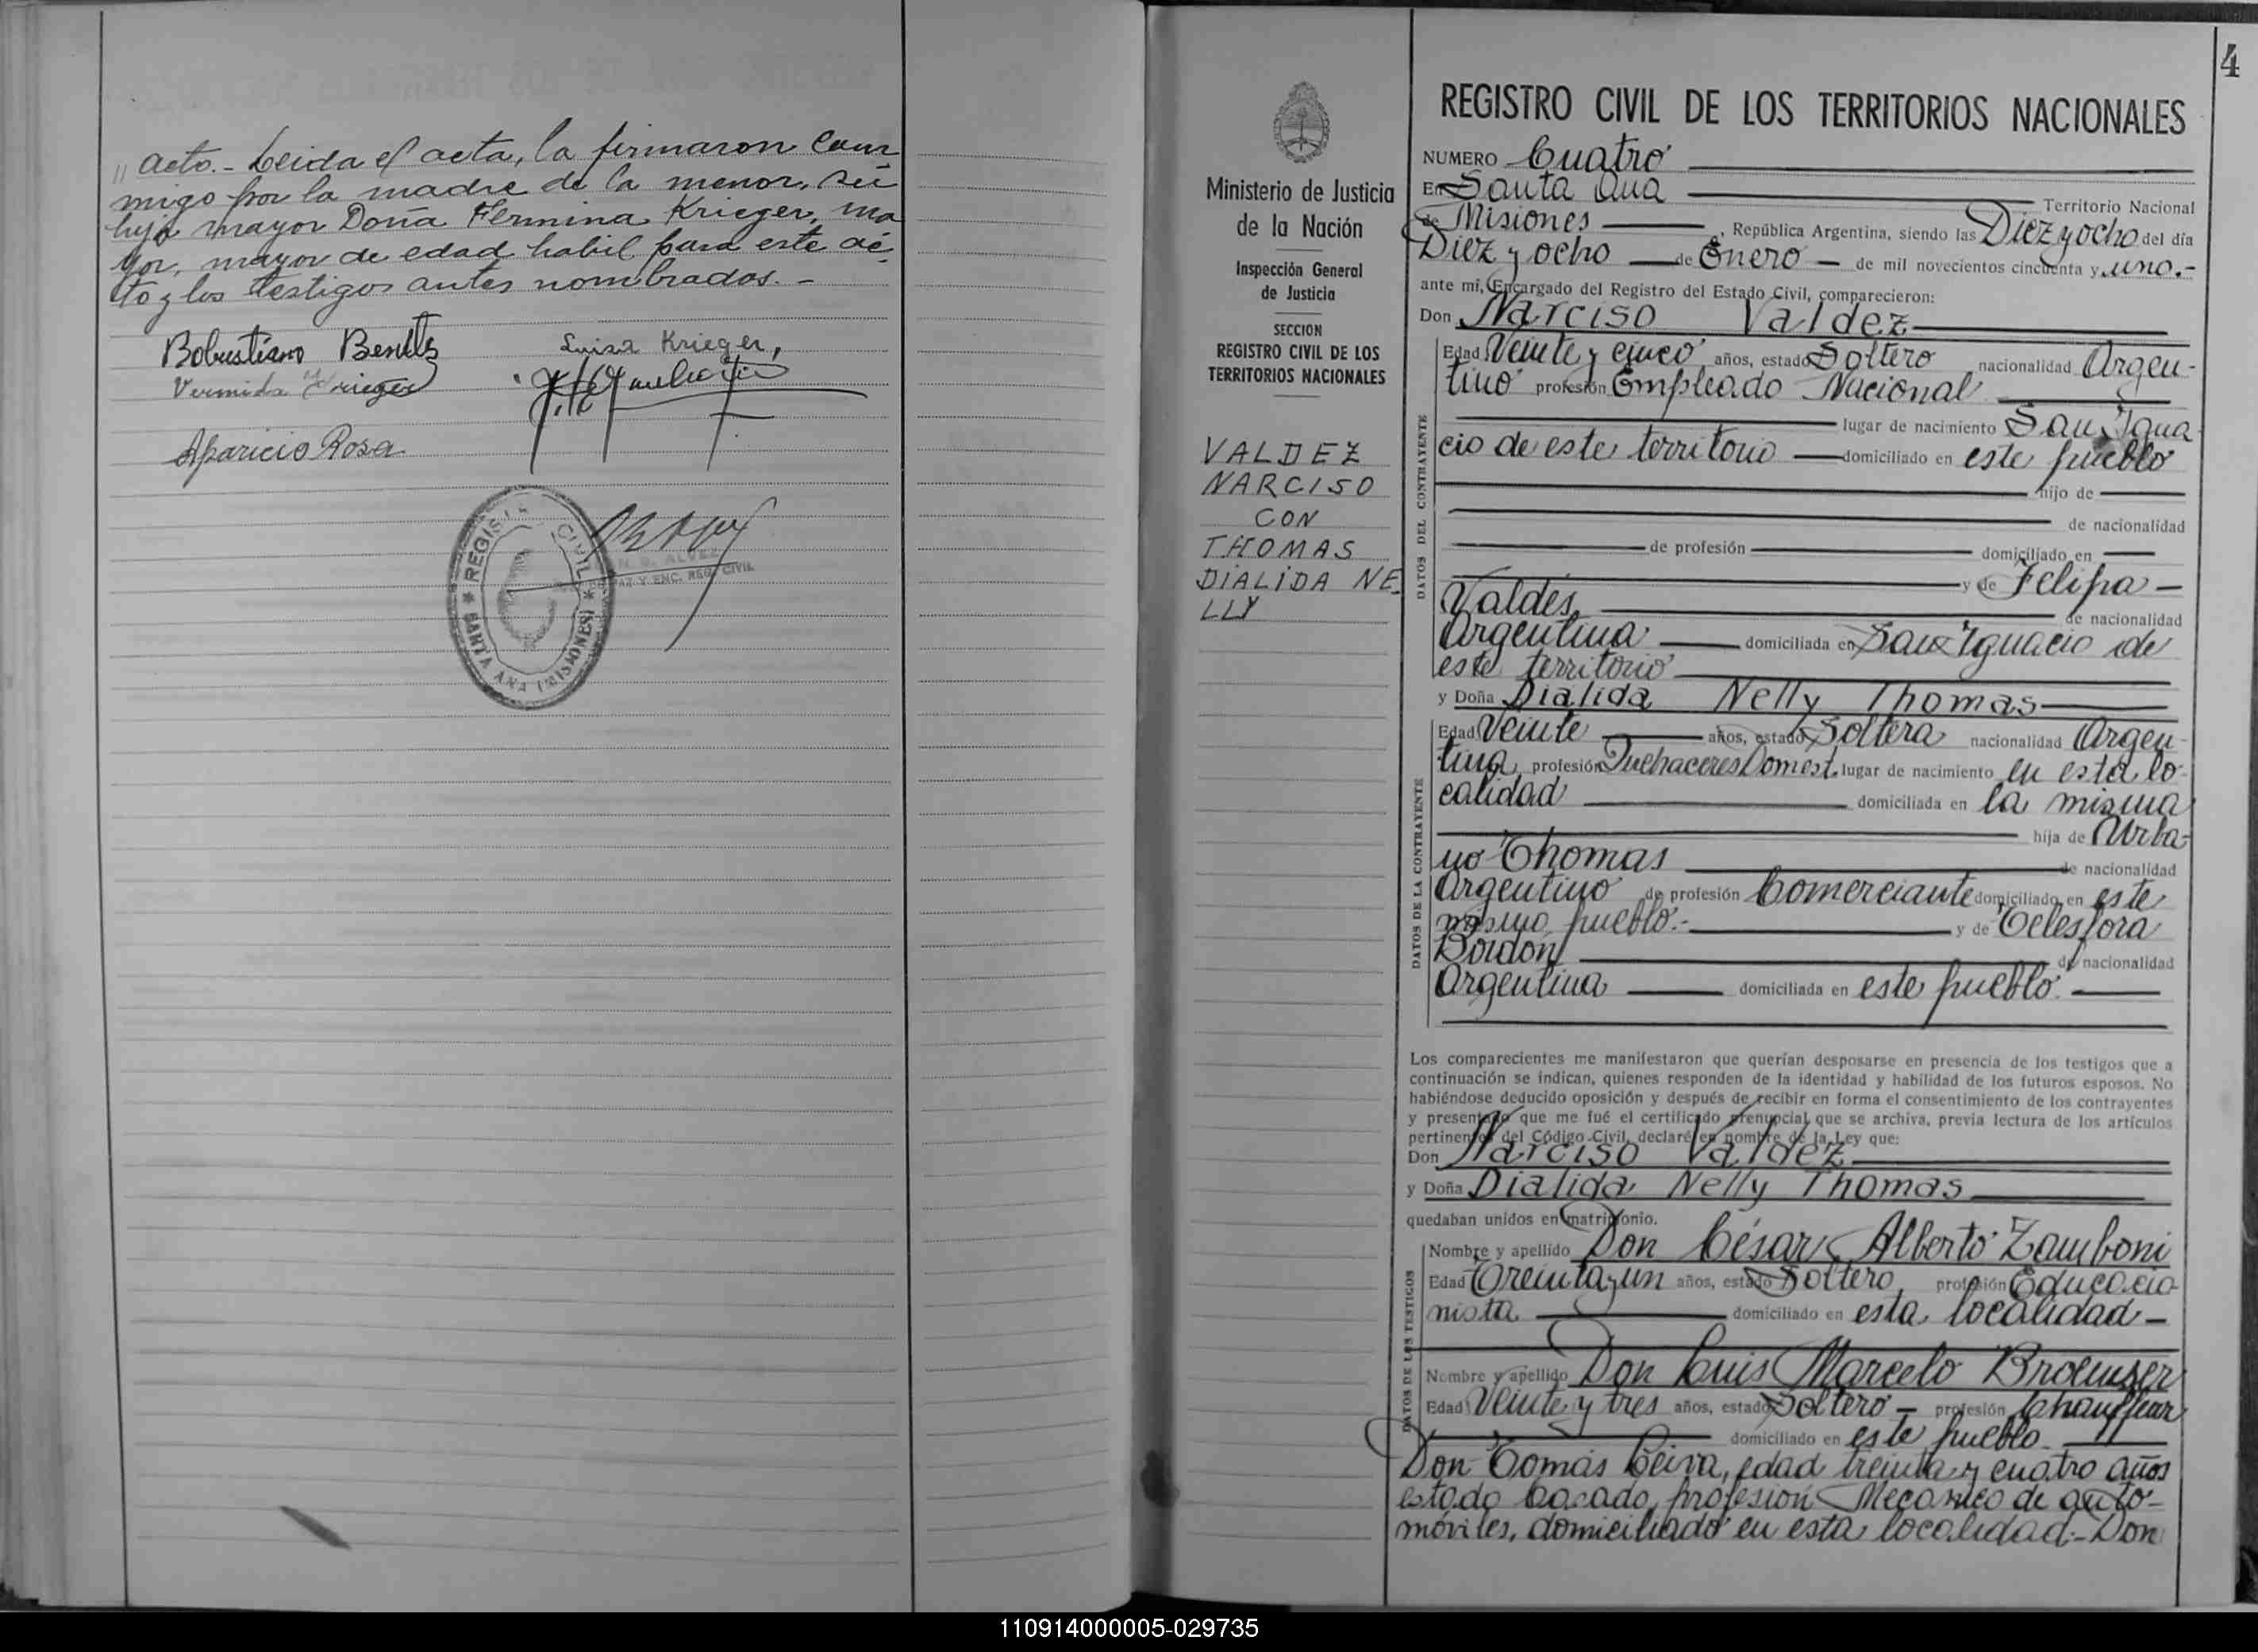 " acto.- Leida el acta, la firmaron con-
migo por la madre de la menor, su
hija mayor Doña Fermina Krieger, ma
yor, mayor de edad habil para este ac-
to y los testigos antes nombrados. -
Robustiano Benitez
Luisa Krieger,
Vermida Krieger
Aparicio Rosa
REGISTRO CIVIL
SANTA ANA (MISIONES)
PAZ Y ENC. REG. CIVIL
4
Ministerio de Justicia
de la Nación
Inspección General
de Justicia
SECCION
REGISTRO CIVIL DE LOS
TERRITORIOS NACIONALES
VALDEZ
NARCISO
CON
THOMAS
DIALIDA NE
LLY
REGISTRO CIVIL DE LOS TERRITORIOS NACIONALES
NUMERO Cuatro
En Santa Ana
Territorio Nacional
de Misiones , República Argentina, siendo las Diez y ocho del día
Diez y ocho de Enero de mil novecientos cincuenta y uno.-
ante mí, Encargado del Registro del Estado Civil, comparecieron:
Don Narciso Valdez
DATOS DEL CONTRAYENTE
Edad Veinte y cinco años, estado Soltero nacionalidad Argen-
tino profesión Empleado Nacional
lugar de nacimiento San Igna
cio de este territorio domiciliado en este pueblo
hijo de
de nacionalidad
de profesión domiciliado en
y de Felipa
Valdés
de nacionalidad
Argentina domiciliada en San Ignacio de
este territorio
y Doña Dialida Nelly Thomas
DATOS DE LA CONTRAYENTE
Edad Veinte años, estado Soltera nacionalidad Argen-
tina profesión Quehaceres Domest. lugar de nacimiento en esta lo-
calidad domiciliada en la misma
hija de Urba-
no Thomas
de nacionalidad
Argentino de profesión Comerciante domiciliado en este
mismo pueblo.- y de Telesfora
Bordón
de nacionalidad
Argentina domiciliada en este pueblo.
Los comparecientes me manifestaron que querían desposarse en presencia de los testigos que a
continuación se indican, quienes responden de la identidad y habilidad de los futuros esposos. No
habiéndose deducido oposición y después de recibir en forma el consentimiento de los contrayentes
y presentado que me fué el certificado prenupcial que se archiva, previa lectura de los artículos
pertinentes del Código Civil, declaré en nombre de la Ley que:
Don Narciso Valdez
y Doña Dialida Nelly Thomas
quedaban unidos en matrimonio.
DATOS DE LOS TESTIGOS
Nombre y apellido Don César Alberto Zamboni
Edad Treinta y un años, estado Soltero, profesión Educacio-
nista domiciliado en esta localidad
Nombre y apellido Don Luis Marcelo Broemser
Edad Veinte y tres años, estado Soltero profesión Chauffear
domiciliado en este pueblo
Don Tomás Leiva, edad treinta y cuatro años
estado casado, profesión Mecanico de auto-
móviles, domiciliado en esta localidad.- Don
110914000005-029735